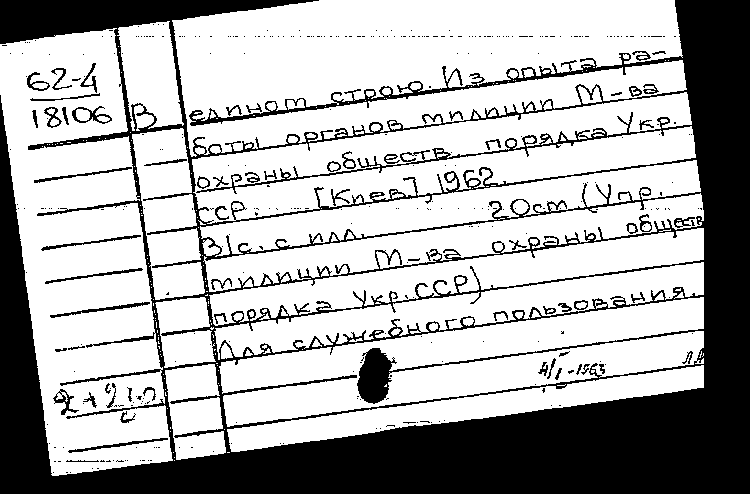 62-4
18106 В
едином строю. Из опыта ра-
боты органов милиции М-ва
охраны обществ. порядка Укр.
ССР. [Киев], 1962.
31с. с илл. 20см (Упр.
милиции М-ва охраны обществ
порядка Укр. ССР).
Для служебного пользования.
4/I-1963